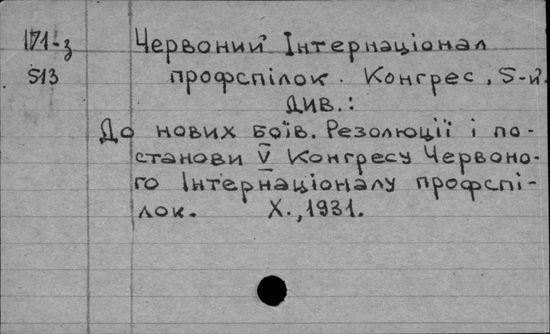 171-з
513
Червоний Інтернаціонал
профспілок. Конгрес, 5-й.
див.:
До нових боїв. Резолюції і по-
станови V Конгресу Червоно-
го Інтернаціоналу профспі-
лок. Х., 1931.